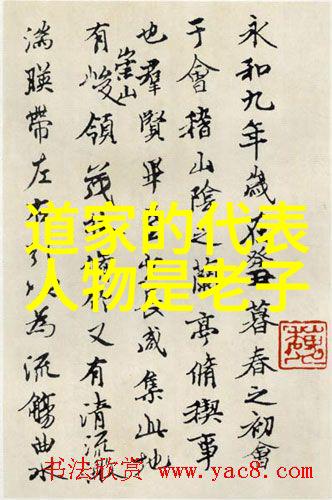 永和九年歲在癸丑暮春之初會
于會稽山陰之蘭亭脩禊事
也羣賢畢至少長咸集此地
有崇山峻領茂林脩竹又有清流激
湍暎帶左右引以為流觴曲水
道家的代表
人物是老子
书法欣赏 www.yac8.com